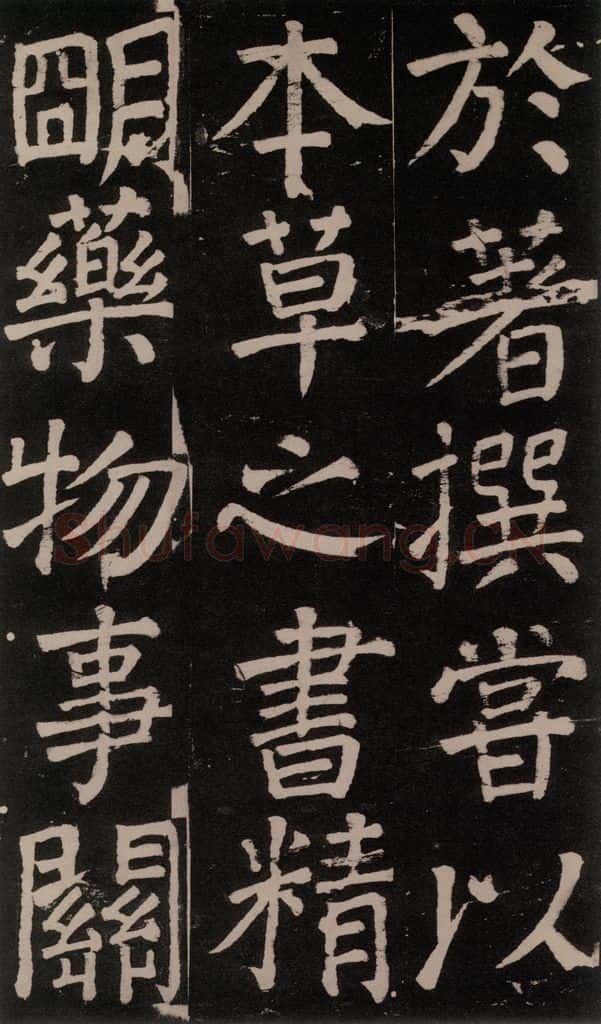 於著撰嘗以
本草之書精
朙藥物事關
Shufawang.CN